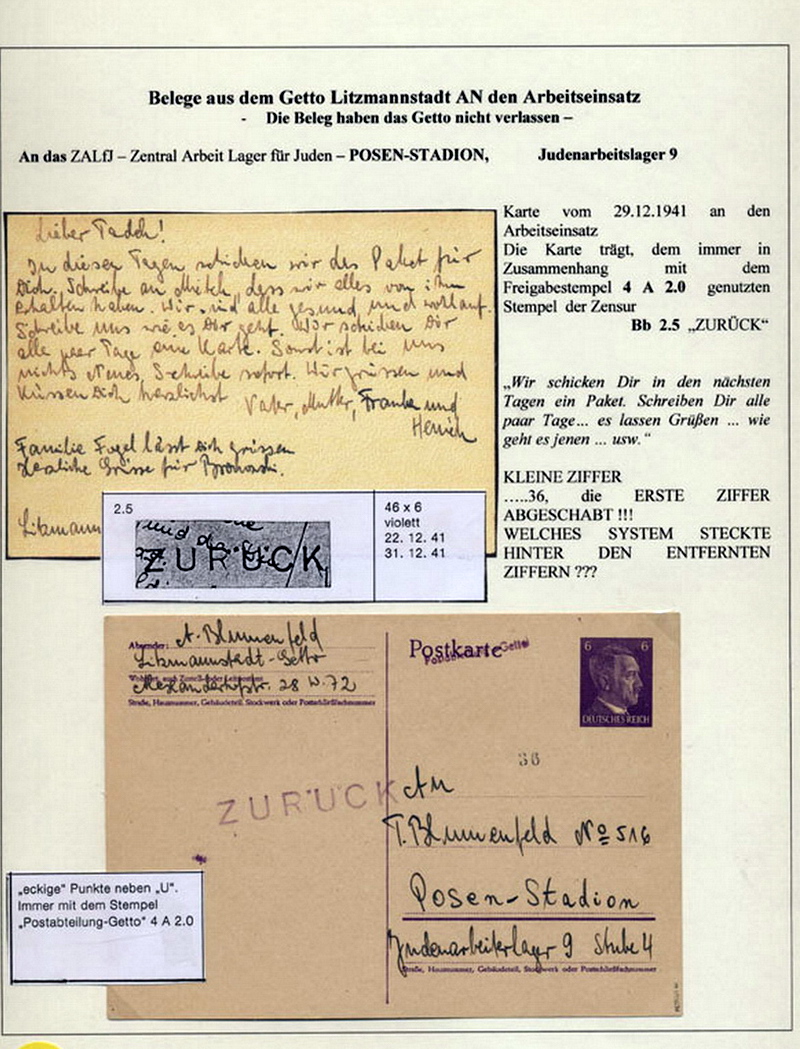 Belege aus dem Getto Litzmannstadt AN den Arbeitseinsatz
- Die Beleg haben das Getto nicht verlassen –
An das ZALfJ – Zentral Arbeit Lager für Juden – POSEN-STADION, Judenarbeitslager 9
Lieber Tadek!
In diesen Tagen schicken wir des Paket für
Dich. Schreibe an Mietek, dess wir alles von ihm
erhalten haben. Wir sind alle gesund und wohlauf.
Schreibe uns wie es Dir geht. Wir schicken Dir
alle paar Tage eine Karte. Sonst ist bei uns
nichts Neues. Schreibe sofort. Wir grüssen und
küssen Dich herzlichst
Vater, Mutter, Franka und
Heniek
Familie Fogel lässt Dich grüssen
Herzliche Grüsse für
Litzmann
Karte vom 29.12.1941 an den
Arbeitseinsatz
Die Karte trägt, dem immer in
Zusammenhang mit dem
Freigabestempel 4 A 2.0 genutzten
Stempel der Zensur
Bb 2.5 „ZURÜCK“
„Wir schicken Dir in den nächsten
Tagen ein Paket. Schreiben Dir alle
paar Tage... es lassen Grüßen ... wie
geht es jenen ... usw.“
KLEINE ZIFFER
.....36, die ERSTE ZIFFER
ABGESCHABT !!!
WELCHES SYSTEM STECKTE
HINTER DEN ENTFERNTEN
ZIFFERN ???
2.5
ZURÜCK
46 x 6
violett
22. 12. 41
31. 12. 41
Absender: A. Blumenfeld
Litzmannstadt-Getto
Wohnort, auch Zustell- oder Leitpostamt
Alexanderhofstr. 28 W. 72
Straße, Hausnummer, Gebäudeteil, Stockwerk oder Postschließfachnummer
Postkarte
6 6
DEUTSCHES REICH
36
ZURÜCK
An
T. Blumenfeld No 516
Posen-Stadion
Judenarbeiterlager 9 Stube 4
Straße, Hausnummer, Gebäudeteil, Stockwerk oder Postschließfachnummer
„eckige“ Punkte neben „U“.
Immer mit dem Stempel
„Postabteilung-Getto“ 4 A 2.0